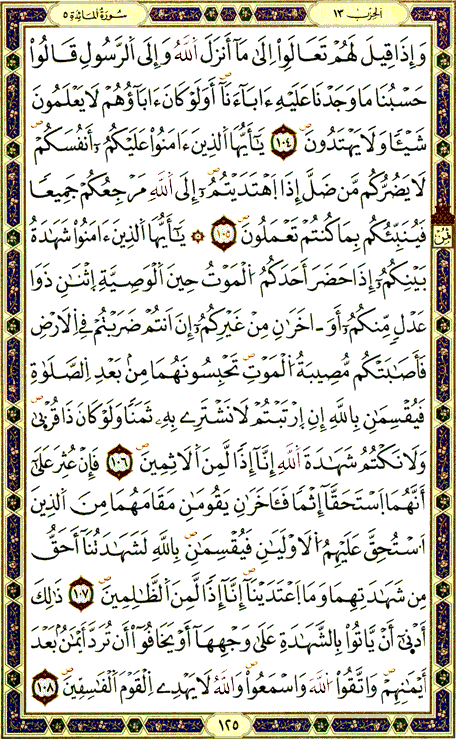 الحزب ١٣
سورة المائدة ٥
وَإِذَا قِيلَ لَهُمْ تَعَالَوِاْ اِلَىٰ مَآ أَنزَلَ اَ۬للَّهُ وَإِلَى اَ۬لرَّسُولِ قَالُواْ
حَسْبُنَا مَا وَجَدْنَا عَلَيْهِ ءَابَآءَنَآ أَوَلَوْ كَانَ ءَابَآؤُهُمْ لَا يَعْلَمُونَ
شَيْـٔاً وَلَا يَهْتَدُونَ ١٠٤ يَـٰٓأَيُّهَا اَ۬لذِينَ ءَامَنُواْ عَلَيْكُمُۥٓ أَنفُسَكُمْ
لَا يَضُرُّكُم مَّن ضَلَّ إِذَا اَ۪هْتَدَيْتُمُۥٓ إِلَى اَ۬للَّهِ مَرْجِعُكُمْ جَمِيعاً
فَيُنَبِّئُكُم بِمَا كُنتُمْ تَعْمَلُونَ ١٠٥ يَـٰٓأَيُّهَا اَ۬لذِينَ ءَامَنُواْ شَهَٰدَةُ
بَيْنِكُمُۥٓ إِذَا حَضَرَ أَحَدَكُمُ اُ۬لْمَوْتُ حِينَ اَ۬لْوَصِيَّةِ اِ۪ثْنَٰنِ ذَوَا
عَدْلٍ مِّنكُمُۥٓ أَوَ اٰخَرَٰنِ مِنْ غَيْرِكُمُۥٓ إِنَ اَنتُمْ ضَرَبْتُمْ فِے اِ۬لَارْضِ
فَأَصَٰبَتْكُم مُّصِيبَةُ اُ۬لْمَوْتِ تَحْبِسُونَهُمَا مِنۢ بَعْدِ اِ۬لصَّلَوٰةِ
فَيُقْسِمَٰنِ بِاللَّهِ إِنِ اِ۪رْتَبْتُمْ لَا نَشْتَرِے بِهِۦ ثَمَناً وَلَوْ كَانَ ذَا قُرْب۪ىٰ
وَلَا نَكْتُمُ شَهَٰدَةَ اَ۬للَّهِ إِنَّآ إِذاً لَّمِنَ اَ۬لَاثِمِينَ ١٠٦ فَإِنْ عُثِرَ عَلَىٰٓ
أَنَّهُمَا اَ۪سْتَحَقَّآ إِثْماً فَـَٔاخَرَٰنِ يَقُومَٰنِ مَقَامَهُمَا مِنَ اَ۬لذِينَ
اَ۟سْتُحِقَّ عَلَيْهِمُ اُ۬لَاوْلَيَٰنِ فَيُقْسِمَٰنِ بِاللَّهِ لَشَهَٰدَتُنَآ أَحَقُّ
مِن شَهَٰدَتِهِمَا وَمَا اَ۪عْتَدَيْنَآ إِنَّآ إِذاً لَّمِنَ اَ۬لظَّٰلِمِينَ ١٠٧ ذَٰلِكَ
أَدْن۪ىٰٓ أَنْ يَّاتُواْ بِالشَّهَٰدَةِ عَلَىٰ وَجْهِهَآ أَوْ يَخَافُوٓاْ أَن تُرَدَّ أَيْمَٰنُۢ بَعْدَ
أَيْمَٰنِهِمْ وَاتَّقُواْ اُ۬للَّهَ وَاسْمَعُواْ وَاللَّهُ لَا يَهْدِے اِ۬لْقَوْمَ اَ۬لْفَٰسِقِينَ ١٠٨
ثمن
١٢٥